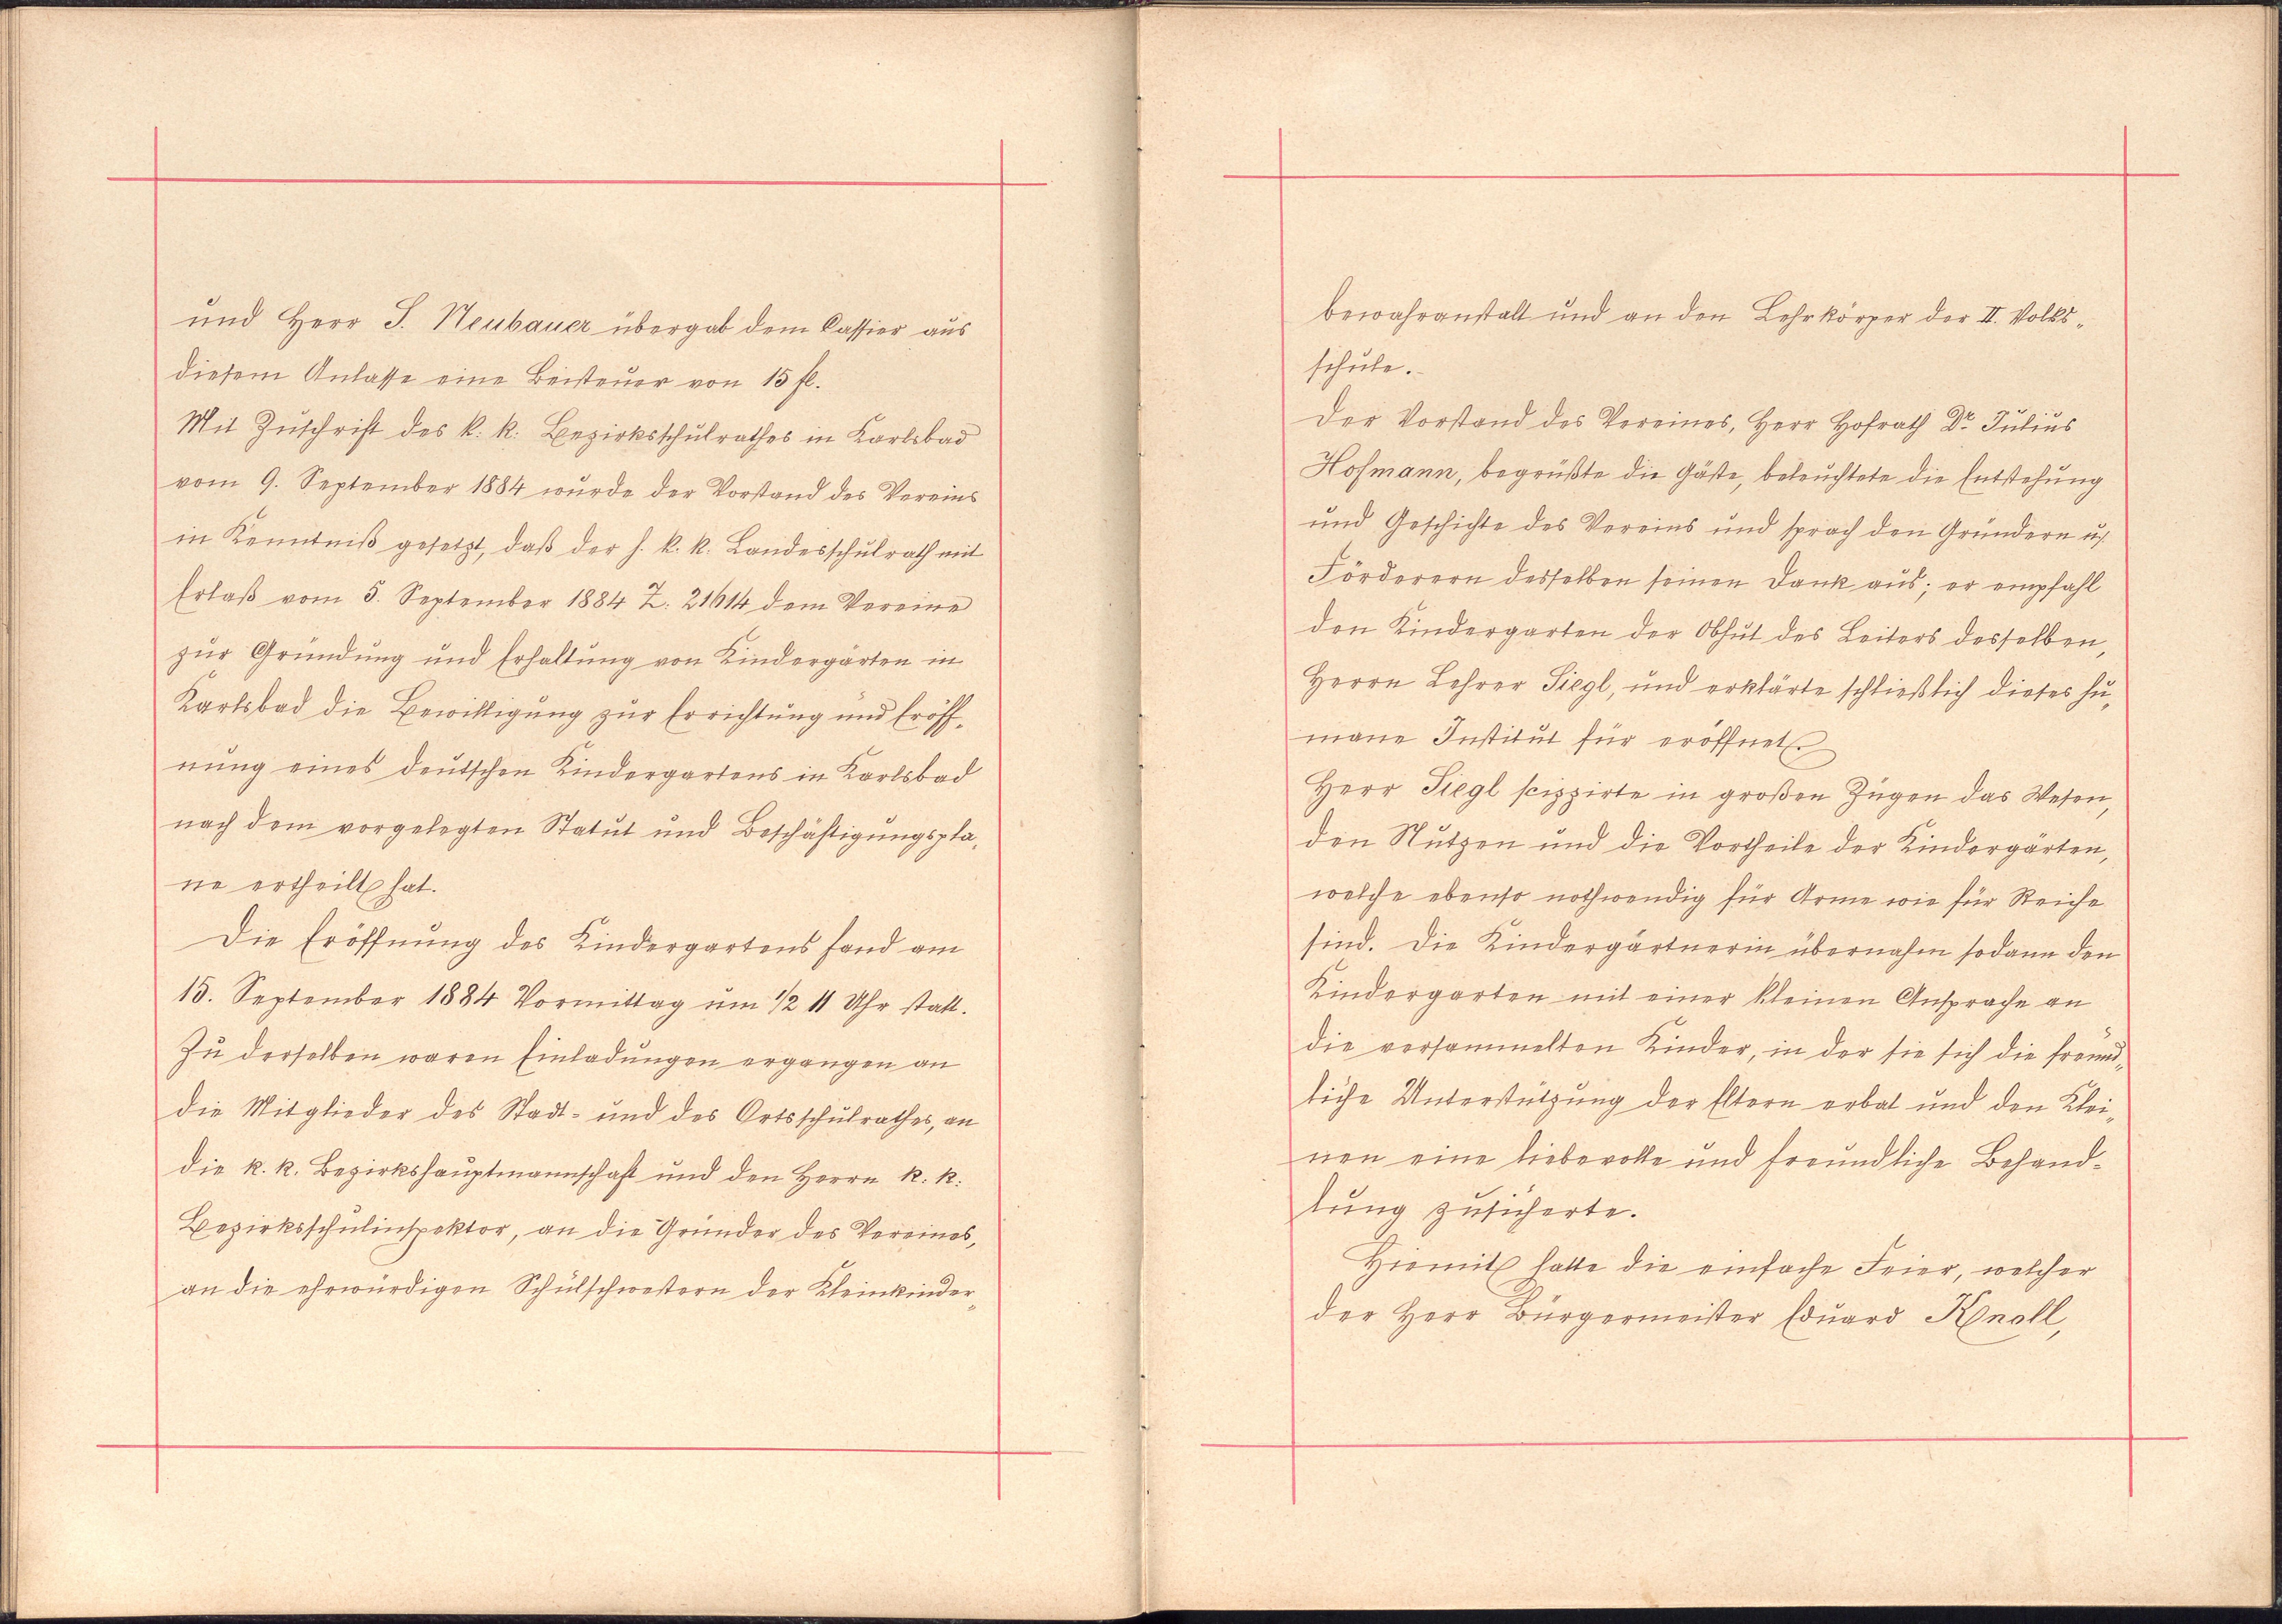 und Herr J. Neubauer übergab dem Cassier aus
diesem Anlasse eine Beisteuer von 15 fl.
Mit Zuschrift des k. k. Bezirksschulrathes in Karlsbad
vom 9. September 1884 wurde der Vorstand des Vereins
in Kenntniß gesetzt, daß der h. k. k. Landesschulrath mit
Erlaß vom 5. September 1884 Z: 21614 dem Vereine
zur Gründung und Erhaltung von Kindergärten in
Karlsbad die Bewilligung zur Errichtung und Eröff-
nung eines deutschen Kindergartens in Karlsbad
nach dem vorgelegten Statut und Beschäftigungspla-
ne ertheilt hat.
Die Eröffnung des Kindergartens fand am
15. September 1884 Vormittag um 1/2 11 Uhr statt.
Zu derselben waren Einladungen ergangen an
die Mitglieder des Stadt- und des Ortsschulrathes, an
die k. k. Bezirkshauptmannschaft und den Herrn k. k.
Bezirksschulinspektor, an die Gründer des Vereines,
an die ehrwürdigen Schulschwestern der Kleinkinder-
bewahranstalt und an den Lehrkörper der II. Volks-
schule.
Der Vorstand des Vereines, Herr Hofrath Dr. Julius
Hofmann, begrüßte die Gäste, beleuchtete die Entstehung
und Geschichte des Vereins und sprach den Gründern u.
Förderern desselben seinen Dank aus; er empfahl
den Kindergarten der Obhut des Leiters desselben,
Herrn Lehrer Siegl, und erklärte schließlich dieses hu-
mane Institut für eröffnet.
Herr Siegl scizzirte in großen Zügen das Wesen,
den Nutzen und die Vortheile der Kindergärten,
welche ebenso nothwendig für Arme wie für Reiche
sind. Die Kindergärtnerin übernahm sodann den
Kindergarten mit einer kleinen Ansprache an
die versammelten Kinder, in der sie sich die freund-
liche Unterstützung der Eltern erbat und den Klei-
nen eine liebevolle und freundliche Behand-
lung zusicherte.
Hiemit hatte die einfache Feier, welcher
der Herr Bürgermeister Eduard Knoll,